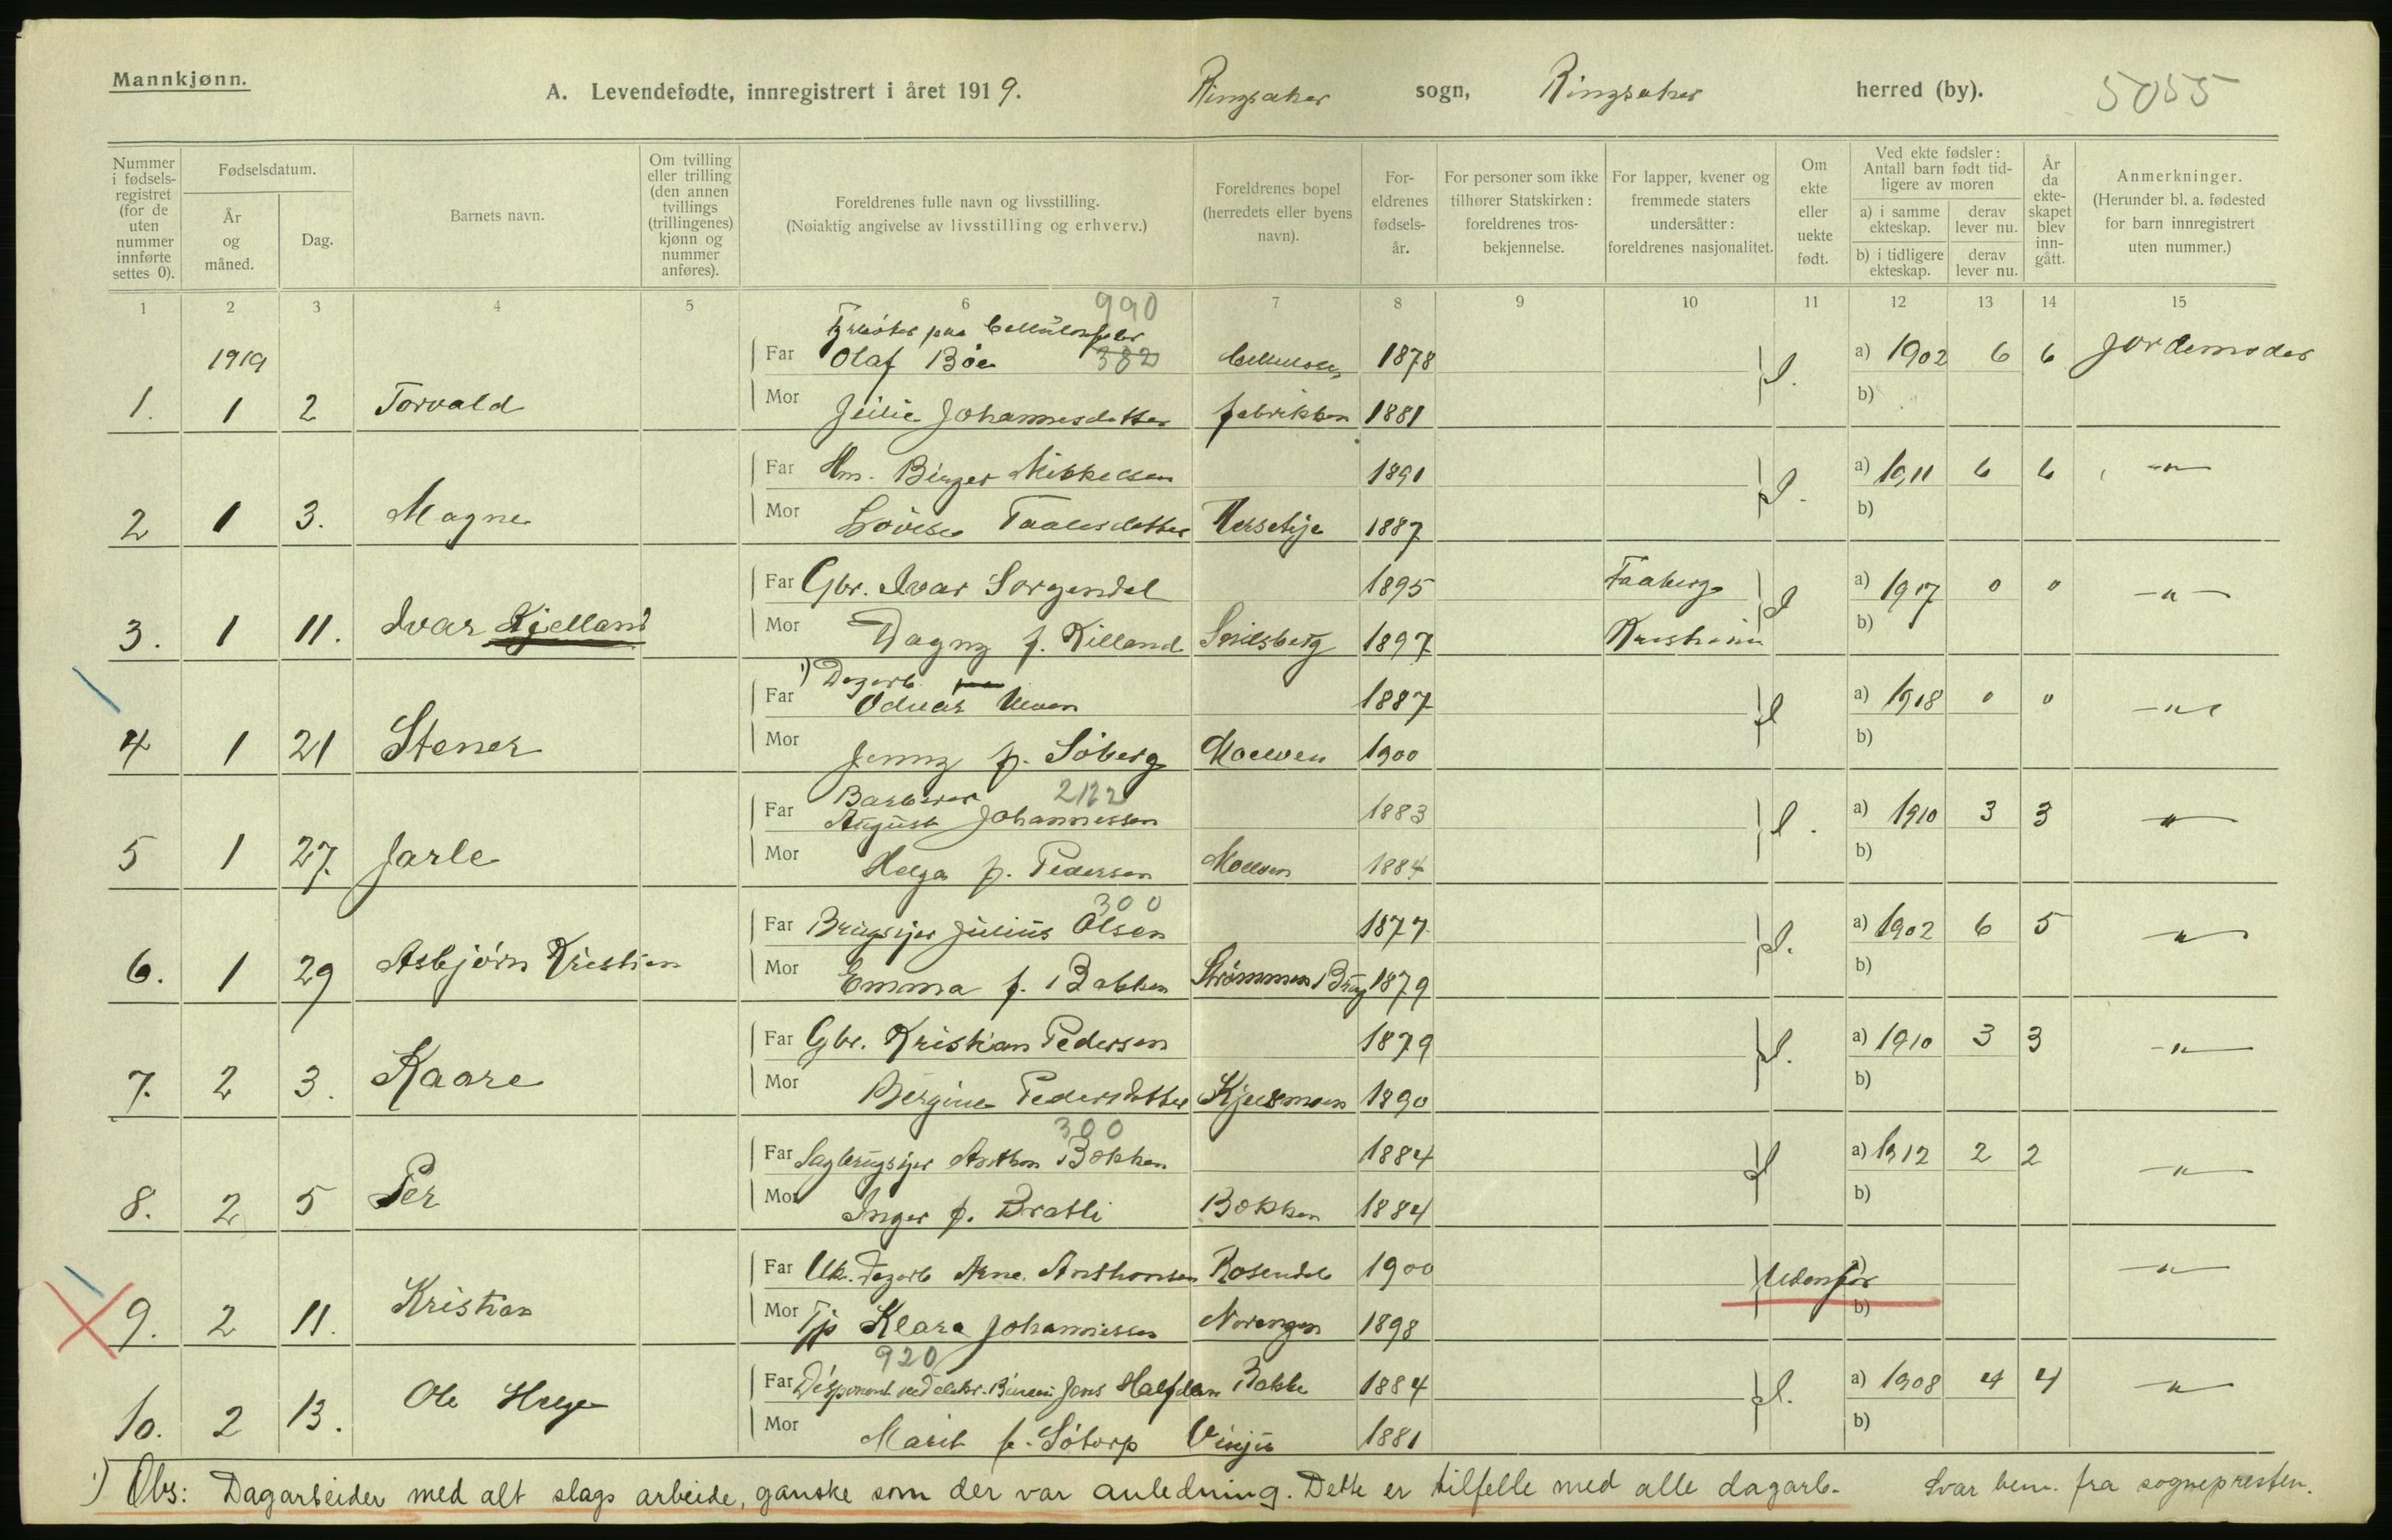 Mannkjønn.
A. Levendefødte, innregistrert i året 1919. Ringsaker sogn, Ringsaker herred (by). 5055
Nummer i fødsels-registret (for de uten nummer innførte settes 0).
Fødselsdatum.
År og måned.
Dag.
Barnets navn.
Om tvilling eller trilling (den annen tvillings (trillingenes) kjønn og nummer anføres).
Foreldrenes fulle navn og livsstilling.
(Nøiaktig angivelse av livsstilling og erhverv.)
Foreldrenes bopel (herredets eller byens navn).
For-eldrenes fødsels-år.
For personer som ikke tilhører Statskirken: foreldrenes tros-bekjennelse.
For lapper, kvener og fremmede staters undersåtter: foreldrenes nasjonalitet.
Om ekte eller uekte født.
Ved ekte fødsler: Antall barn født tid-ligere av moren
a) i samme ekteskap. derav lever nu.
b) i tidligere ekteskap. derav lever nu.
År da ekte-skapet blev inn-gått.
Anmerkninger.
(Herunder bl. a. fødested for barn innregistrert uten nummer.)
1 2 3 4 5 6 7 8 9 10 11 12 13 14 15
990
Fyrbøter paa Cellulosefabr
1919 Far Olaf Böe 382 Cellulose 1878 a) 1902 6 6 Jordemoder
1. 1 2 Torvald Mor Julie Johannesdatter fabrikken 1881 b)
Far Hm. Birger Mikkelsen 1891 a) 1911 6 6 -"-
2 1 3. Magne Mor Lovise Taalesdatter 1887 b)
Far Gbr. Ivar Sorgendal 1895 Faaberg a) 1917 0 0 -"-
3. 1 11. Ivar Kjelland Mor Dagny f. Killand Smidsberg 1897 b)
1) Dagarb.
Far Odvar 1887 a) 1918 0 0 -"-
4 1 21 Stener Mor Jenny f. Söberg Moelven 1900 b)
Barberer 2122
Far August Johannessen 1883 a) 1910 3 3 -"-
5 1 27. Jarle Mor Helga f. Pedersen Moelven 1884 b)
300
Far Brugsejer Julius Olsen 1877 a) 1902 6 5 -"-
6. 1 29 Asbjörn Kristian Mor Emma f. Bakken Strömmen Brug 1879 b)
Far Gbr. Kristian Pedersen 1879 a) 1910 3 3 -"-
7. 2 3. Kaare Mor Bergine Pedersdatter 1890 b)
300
Far Sagbrugsejer Anthon Bakken 1884 a) 1912 2 2 -"-
8. 2 5 Per Mor Inger f. Bratli Bakken 1884 b)
Far Uk. Dagarb Arne Anthonsen Rosendal 1900 Udenfor a) -"-
9. 2 11. Kristian Mor Tjp Klara Johannessen Norengen 1898 b)
920
Far Disponent ved elektr. Jens Halfdan Bakke 1884 a) 1908 4 4 -"-
10. 2 13. Ole Helge Mor Marit f. Sötorp 1881 b)
1) Obs: Dagarbeider med alt slags arbeide, ganske som der var anledning. Dette er tilfelle med alle dagarb. Svar bem. fra sognepresten.